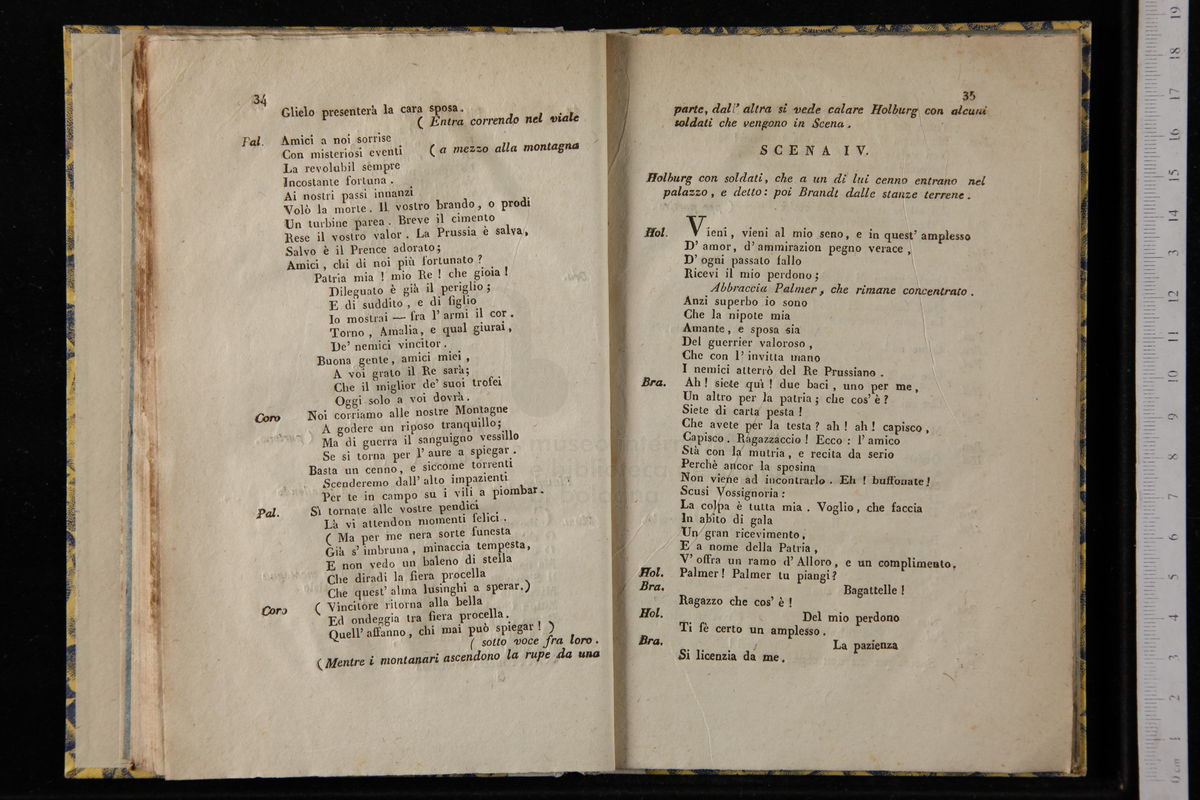 34
Glielo presenterà la cara sposa.
( Entra correndo nel viale
Pal. Amici a noi sorrise
Con misteriosi eventi ( a mezzo alla montagna
La revolubil sempre
Incostante fortuna .
Ai nostri passi innanzi
Volò la morte . Il vostro brando, o prodi
Un turbine parea . Breve il cimento
Rese il vostro valor . La Prussia è salva,
Salvo è il Prence adorato;
Amici, chi di noi più fortunato ?
Patria mia ! mio Re ! che gioia !
Dileguato è già il periglio ;
E di suddito , e di figlio
Io mostrai — fra l' armi il cor .
Torno , Amalia, e qual giurai,
De' nemici vincitor .
Buona gente, amici miei ,
A voi grato il Re sarà;
Che il miglior de' suoi trofei
Oggi solo a voi dovrà .
Coro Noi corriamo alle nostre Montagne
A godere un riposo tranquillo;
Ma di guerra il sanguigno vessillo
Se si torna per l' aure a spiegar .
Basta un cenno, e siccome torrenti
Scenderemo dall' alto impazienti
Per te in campo su i vili a piombar .
Pal. Sì tornate alle vostre pendici
Là vi attendon momenti felici .
( Ma per me nera sorte funesta
Già s' imbruna , minaccia tempesta,
E non vedo un baleno di stella
Che diradi la fiera procella
Che quest' alma lusinghi a sperar.)
Coro ( Vincitore ritorna alla bella
Ed ondeggia tra fiera procella.
Quell' affanno, chi mai può spiegar ! )
( sotto voce fra loro .
( Mentre i montanari ascendono la rupe da una
35
parte, dall' altra si vede calare Holburg con alcuni
soldati che vengono in Scena .
SCENA IV.
Holburg con soldati, che a un di lui cenno entrano nel
palazzo , e detto: poi Brandt dalle stanze terrene .
Hol. Vieni, vieni al mio seno, e in quest' amplesso
D' amor, d' ammirazion pegno verace ,
D' ogni passato fallo
Ricevi il mio perdono ;
Abbraccia Palmer, che rimane concentrato .
Anzi superbo io sono
Che la nipote mia
Amante, e sposa sia
Del guerrier valoroso ,
Che con l' invitta mano
I nemici atterrò del Re Prussiano .
Bra. Ah ! siete quì ! due baci , uno per me ,
Un altro per la patria ; che cos' è ?
Siete di carta pesta !
Che avete per la testa ? ah ! ah ! capisco ,
Capisco . Ragazzaccio ! Ecco : l' amico
Stà con la mutria, e recita da serio
Perchè ancor la sposina
Non viene ad incontrarlo . Eh ! buffonate !
Scusi Vossignoria :
La colpa è tutta mia . Voglio, che faccia
In abito di gala
Un gran ricevimento ,
E a nome della Patria ,
V' offra un ramo d' Alloro, e un complimento.
Hol. Palmer ! Palmer tu piangi ?
Bra. Bagattelle !
Ragazzo che cos' è !
Hol. Del mio perdono
Ti fè certo un amplesso .
Bra. La pazienza
Si licenzia da me .